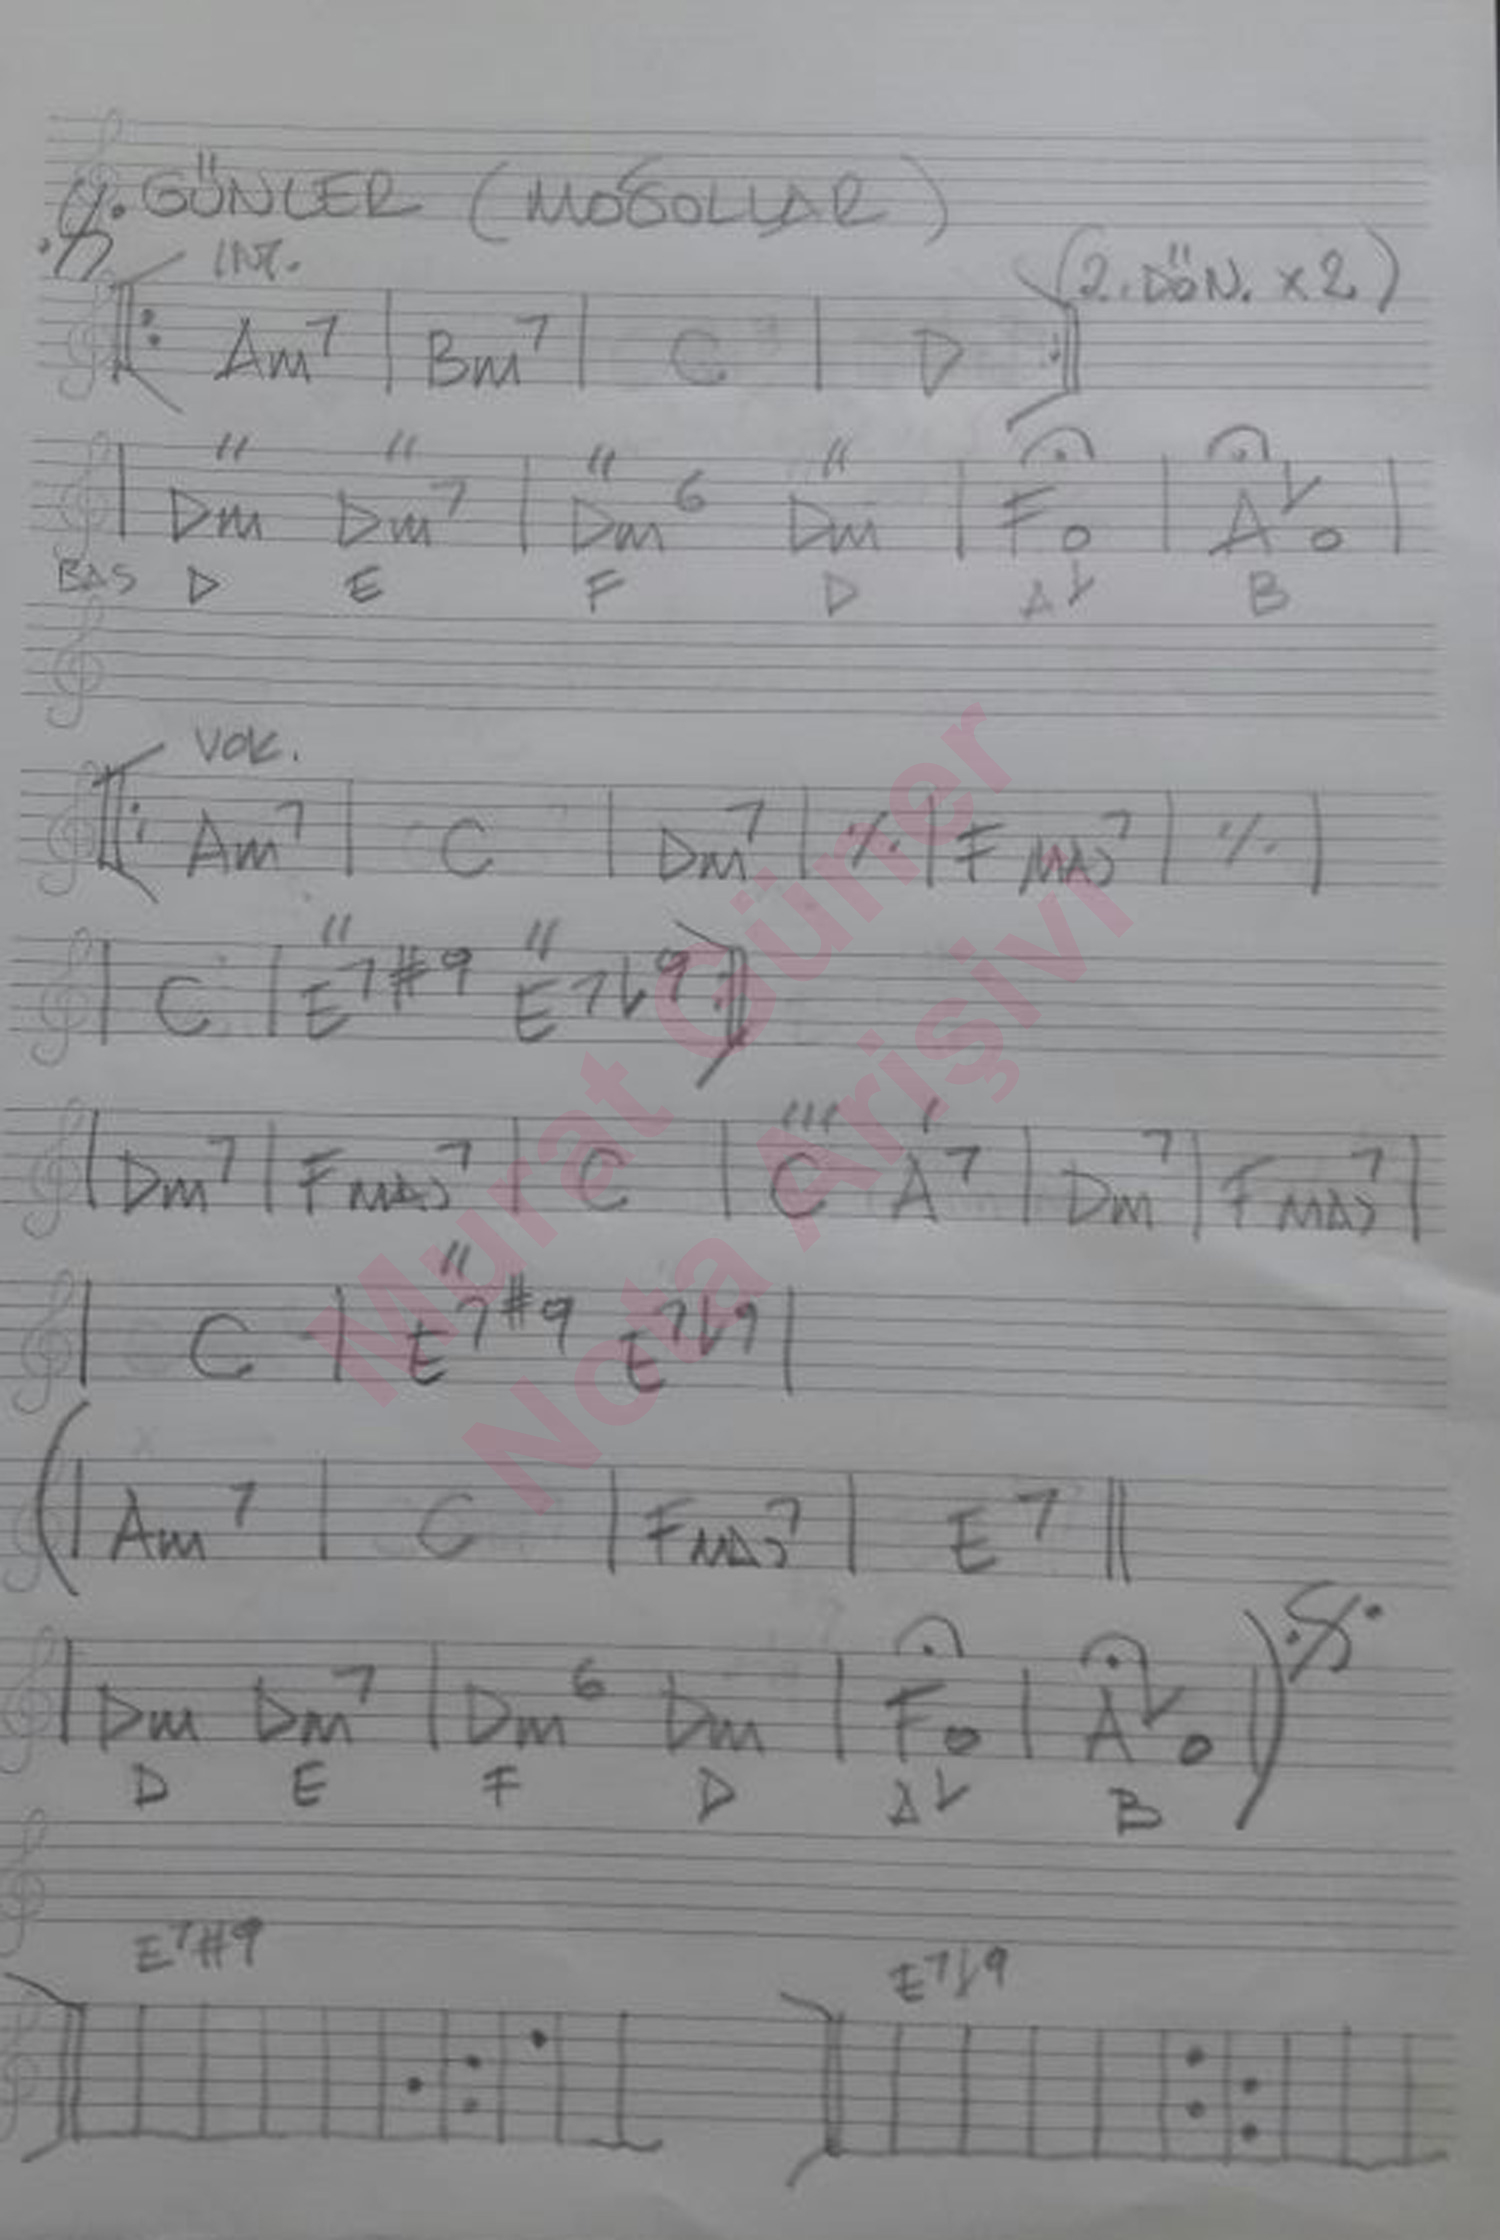 Y. GÜNLER (MOĞOLLAR)
INT. (2. DÖN. x2)
Am7 | Bm7 | C | D
Dm Dm7 | Dm6 Dm | Fo | A♭o |
BAS D E F D A♭ B
VOK.
Am7 | C | Dm7 | ٪ | FMAJ7 | ٪ |
| C | E7#9 E7♭9
| Dm7 | FMAJ7 | C | C A7 | Dm7 | FMAJ7 |
| C | E7#9 E7♭9 |
( | Am7 | C | FMAJ7 | E7 ||
| Dm Dm7 | Dm6 Dm | Fo | A♭o | )
D E F D A♭ B
E7#9 E7♭9
Murat Güner
Nota Arişivi